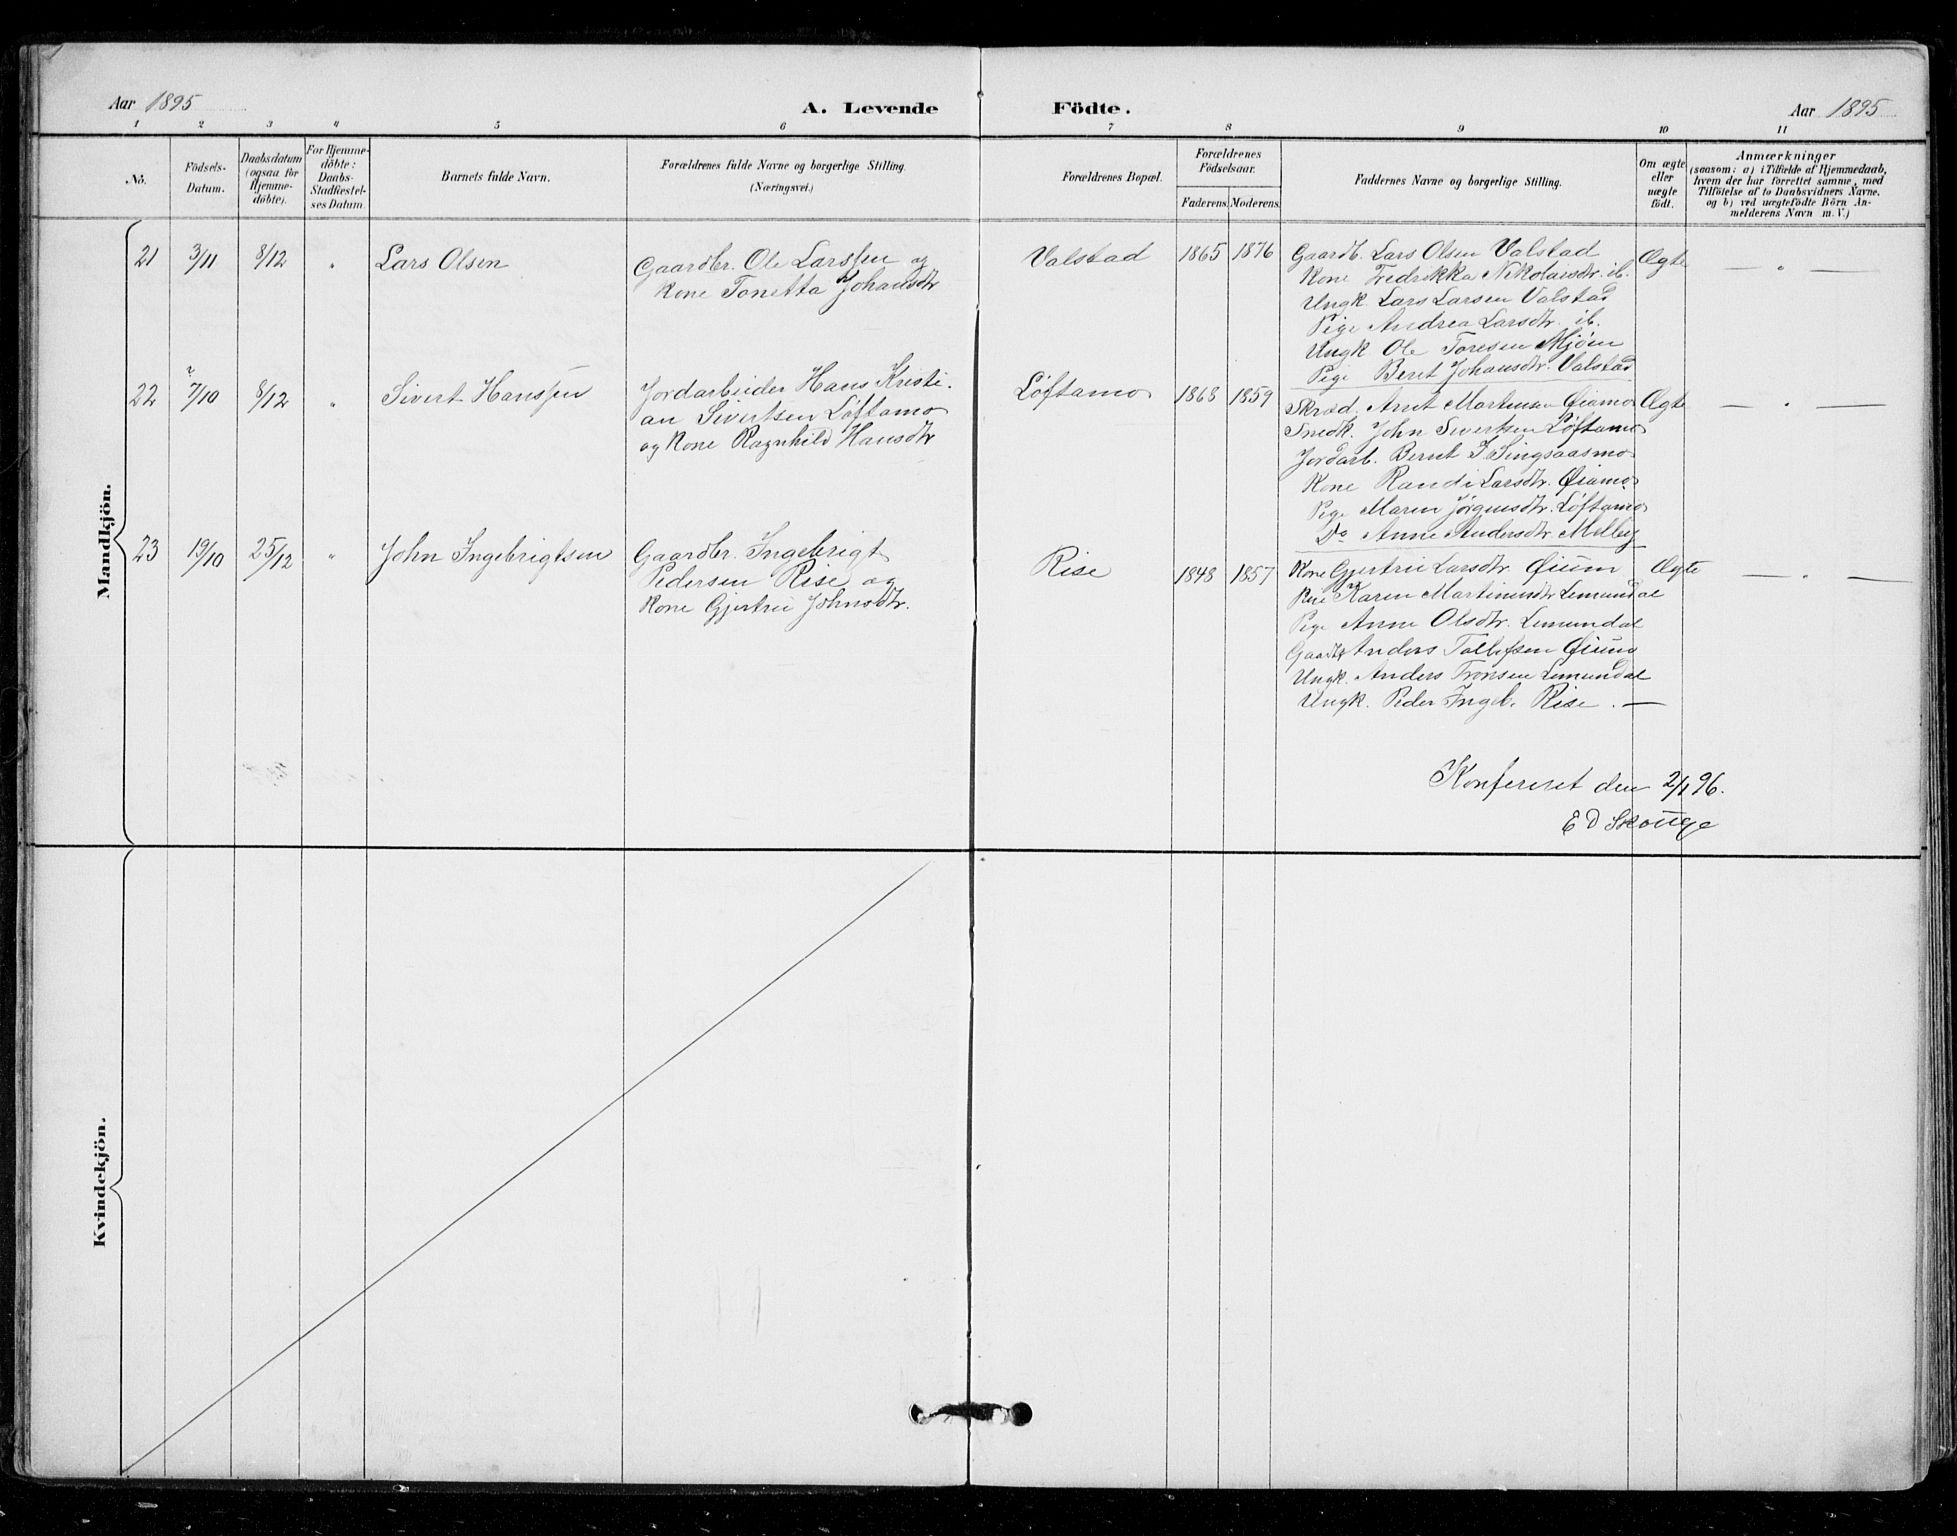 Aar 1895
A. Levende Födte.
Aar 1895
1 2 3 4 5 6 7 8 9 10 11
No.
Födsels-
Datum.
Daabsdatum
(ogsaa for
Hjemme-
döbte).
For Hjemme-
döbte:
Daabs-
Stadfæstel-
ses Datum.
Barnets fulde Navn.
Forældrenes fulde Navne og borgerlige Stilling.
(Næringsvei.)
Forældrenes Bopæl.
Forældrenes
Födselsaar.
Faderens. Moderens.
Faddernes Navne og borgerlige Stilling.
Om ægte
eller
uægte
födt.
Anmærkninger
(saasom: a) i Tilfælde af Hjemmedaab,
hvem der har forrettet samme, med
Tilföielse af to Daabsvidners Navne,
og b) ved uægtefödte Börn An-
melderens Navn m. V.)
Mandkjön.
21 3/11 8/12 " Lars Olsen
Gaardbr. Ole Larssen og
Kone Tonetta Johansdtr
Valstad 1865 1876
Gaardb. Lars Olsen Valstad
Kone Fredrikka Nikolaisdtr. ib.
Ungk. Lars Larsen Valstad
Pige Andrea Larsdtr. ib.
Ungk Ole Toresen Mjøen
Pige Beret Johansdtr. Valstad
Ægte — " —
22 7/10 8/12 " Sivert Hanssen
Jordarbeider Hans Kristi-
an Sivertsen Løftamo
og Kone Ragnhild Hansdtr
Løftamo 1868 1859
Skræd. Arnt Martinsen Øiamo
Snedk. John Sivertsen Løftamo
Jordarb. Bernt I. Singsaasmo
Kone Randi Larsdtr. Øiamo
Pige Maren Jørgensdtr. Løftamo
Do Anne Andersdtr. Melby
Ægte — " —
23 19/10 25/12 " John Ingebrigtsen
Gaardbr. Ingebrigt
Pedersen Rise og
Kone Gjertrui Johnsdtr.
Rise 1848 1857
Kone Gjertrui Larsdtr. Øium
Karen Martinusdtr Lemundal
Pige Anne Olsdtr. Lemundal
Gaardb. Anders Tollefsen Øium
Ungk. Anders Tronsen Lemundal
Ungk. Peder Ingeb. Rise. —
Ægte — " —
Konfereret den 2/1 96.
E D Skouge
Kvindekjön.